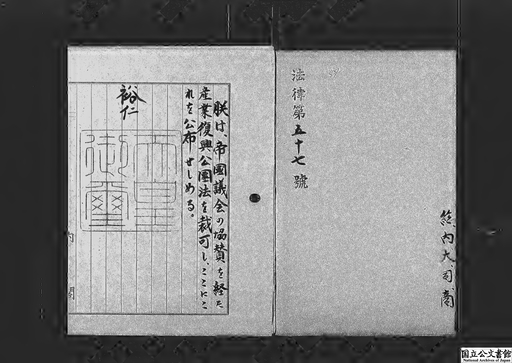 法律第五十七號
總、内、大、司、商
朕は、帝國議会の協賛を経た
産業復興公團法を裁可し、ここにこ
れを公布せしめる。
裕仁
天皇
御璽
国立公文書館
National Archives of Japan